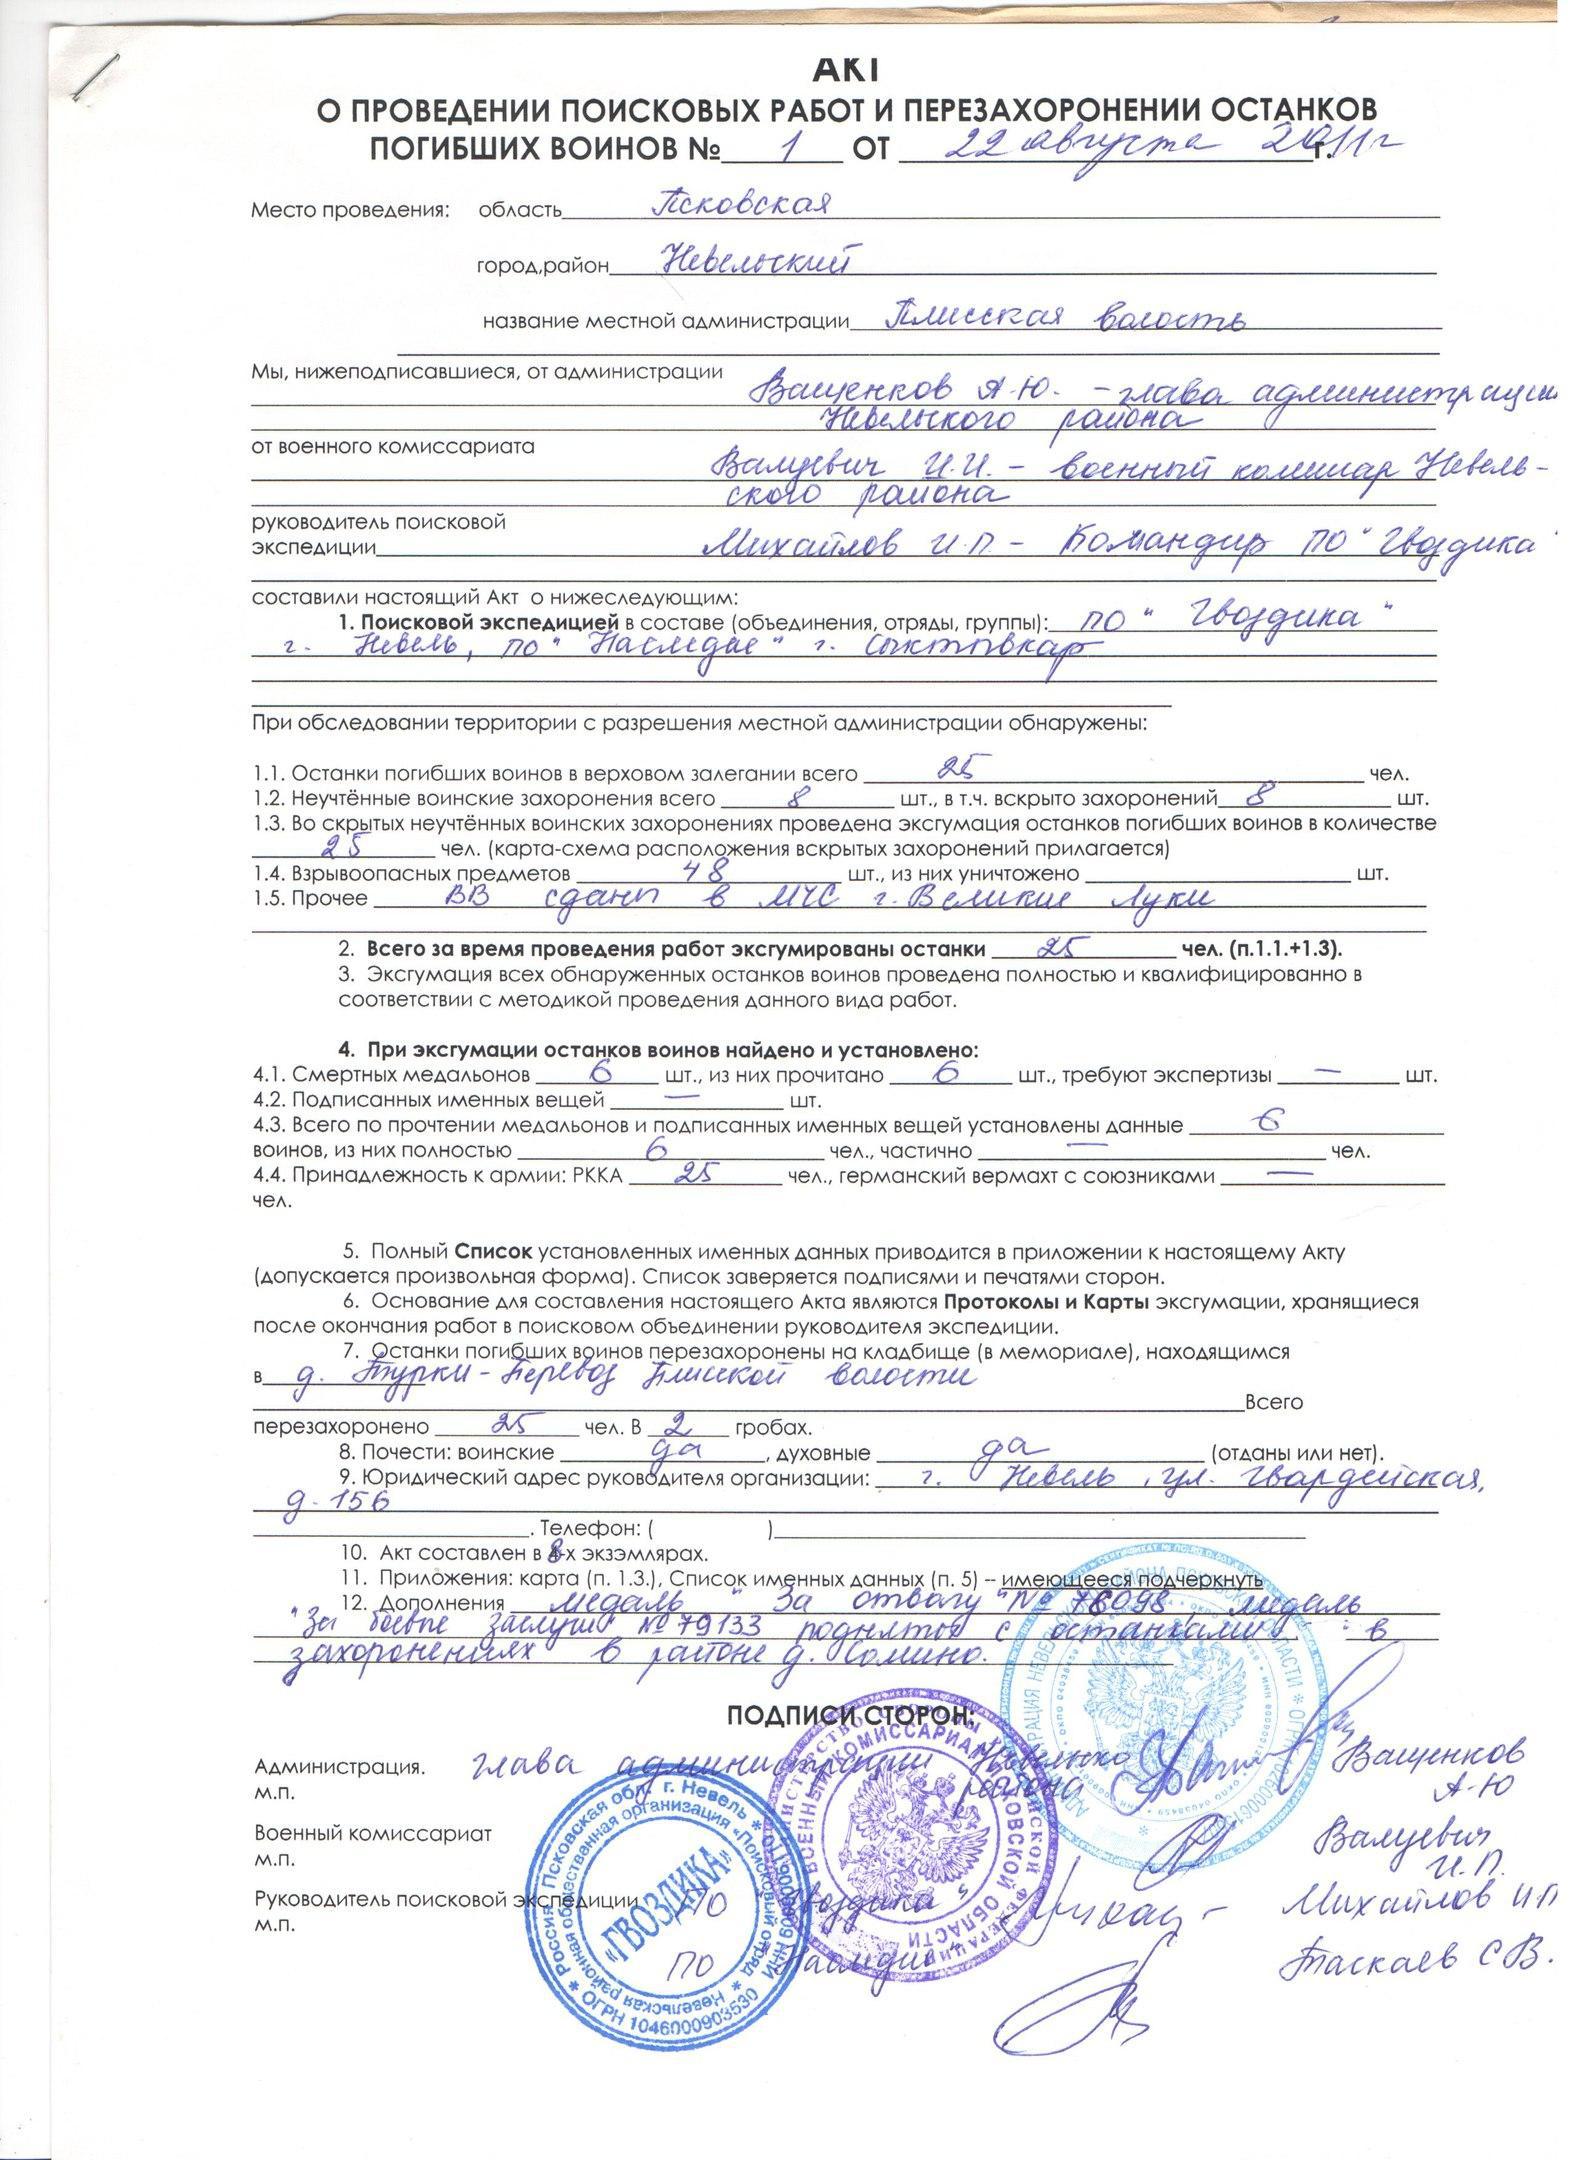 АКТ
О ПРОВЕДЕНИИ ПОИСКОВЫХ РАБОТ И ПЕРЕЗАХОРОНЕНИИ ОСТАНКОВ
ПОГИБШИХ ВОИНОВ № 1 ОТ 22 августа 2011г г.
Место проведения: область Псковская
город,район Невельский
название местной администрации Плисская волость
Мы, нижеподписавшиеся, от администрации
Ващенков А.Ю. - глава администрации
Невельского района
от военного комиссариата
Валуевич И.И. - военный комиссар Невель-
ского района
руководитель поисковой
экспедиции Михайлов И.П - Командир ПО "Гвоздика"
составили настоящий Акт о нижеследующим:
1. Поисковой экспедицией в составе (объединения, отряды, группы): ПО "Гвоздика"
г. Невель, ПО "Наследие" г. Сыктывкар
При обследовании территории с разрешения местной администрации обнаружены:
1.1. Останки погибших воинов в верховом залегании всего 25 чел.
1.2. Неучтённые воинские захоронения всего 8 шт., в т.ч. вскрыто захоронений 8 шт.
1.3. Во скрытых неучтённых воинских захоронениях проведена эксгумация останков погибших воинов в количестве
25 чел. (карта-схема расположения вскрытых захоронений прилагается)
1.4. Взрывоопасных предметов 48 шт., из них уничтожено шт.
1.5. Прочее ВВ сданы в МЧС г. Великие Луки
2. Всего за время проведения работ эксгумированы останки 25 чел. (п.1.1.+1.3).
3. Эксгумация всех обнаруженных останков воинов проведена полностью и квалифицированно в
соответствии с методикой проведения данного вида работ.
4. При эксгумации останков воинов найдено и установлено:
4.1. Смертных медальонов 6 шт., из них прочитано 6 шт., требуют экспертизы — шт.
4.2. Подписанных именных вещей — шт.
4.3. Всего по прочтении медальонов и подписанных именных вещей установлены данные 6
воинов, из них полностью 6 чел., частично — чел.
4.4. Принадлежность к армии: РККА 25 чел., германский вермахт с союзниками —
чел.
5. Полный Список установленных именных данных приводится в приложении к настоящему Акту
(допускается произвольная форма). Список заверяется подписями и печатями сторон.
6. Основание для составления настоящего Акта являются Протоколы и Карты эксгумации, хранящиеся
после окончания работ в поисковом объединении руководителя экспедиции.
7. Останки погибших воинов перезахоронены на кладбище (в мемориале), находящимся
в д. Турки-Перевоз Плисской волости
Всего
перезахоронено 25 чел. В 2 гробах.
8. Почести: воинские да, духовные да (отданы или нет).
9. Юридический адрес руководителя организации: г. Невель, ул. Гвардейская,
д. 156
. Телефон: ( )
10. Акт составлен в 8-х экзэмлярах.
11. Приложения: карта (п. 1.3.), Список именных данных (п. 5) – имеющееся подчеркнуть
12. Дополнения медаль "За отвагу" № 76098 медаль
"За боевые заслуги" № 79133 подняты с останками в
захоронениях в районе д. Сомино.
ПОДПИСИ СТОРОН:
Администрация. глава администрации района Ващенков
м.п. А-Ю
Военный комиссариат Валуевич
м.п. И.П.
Руководитель поисковой экспедиции ПО "Гвоздика" Михайлов ИП
м.п.
ПО "Наследие" Таскаев С В.
Россия Псковская обл. г. Невель
Невельская районная общественная организация «Поисковый отряд
«ГВОЗДИКА»
ОГРН 1046000903530